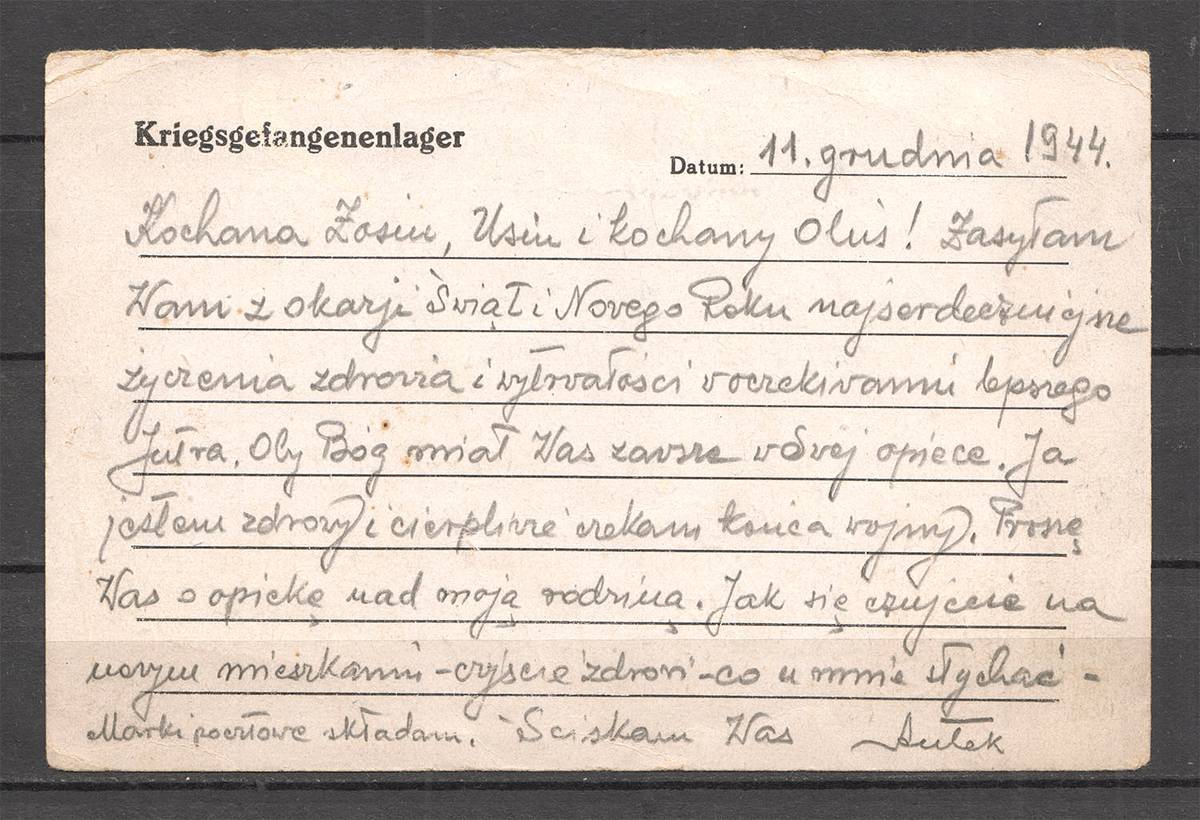 Kriegsgefangenenlager
Datum: 11. grudnia 1944.
Kochana Zosiu, Usiu i kochany Oluś! Zasyłam
Wam z okazji Świąt i Novego Roku najserdeczniejsze
życzenia zdrovia i wytrvałości v oczekivaniu lepszego
Jutra. Oby Bóg miał Was zavsze v Svej opiece. Ja
jestem zdrowy i cierplivie czekam końca wojny. Proszę
Was o opiekę nad moją rodziną. Jak się czujecie na
novym mieszkaniu - czyście zdrovi - co u mnie słychać -
Marki pocztowe składam. Ściskam Was Antek